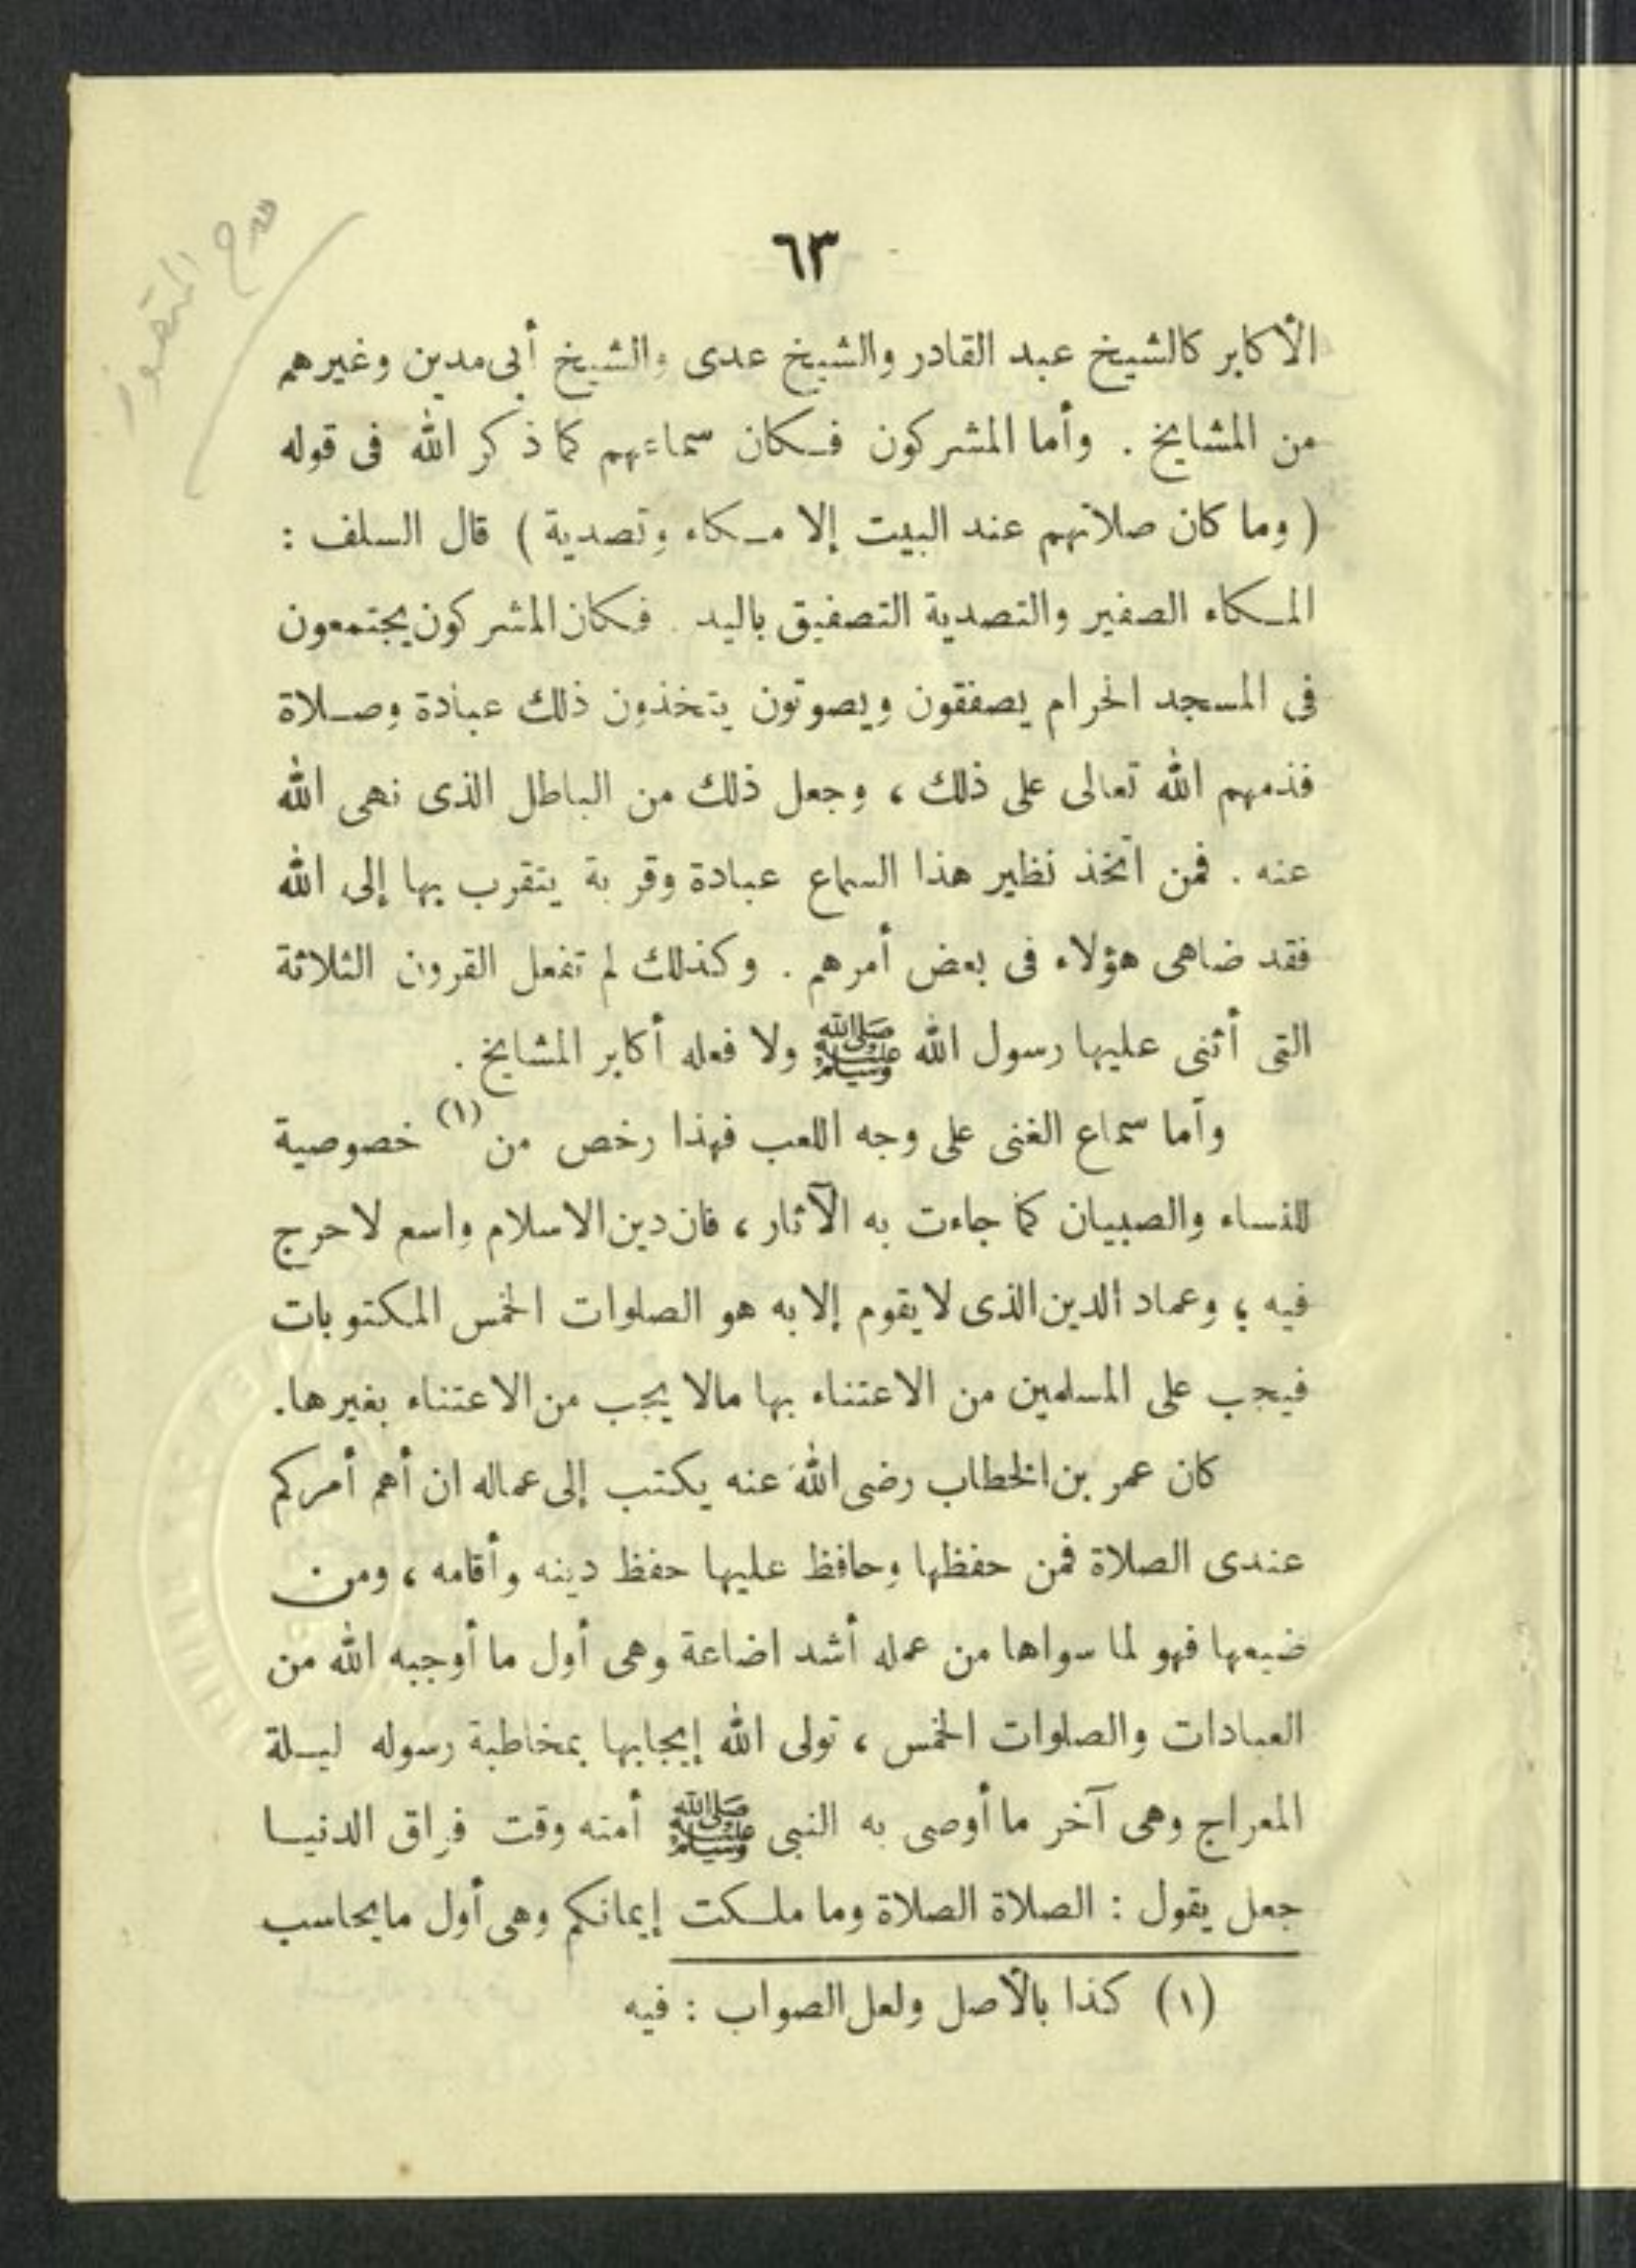 ٦٣
الأكابر كالشيخ عبد القادر والشيخ عدى والشيخ أبى مدين وغيرهم
من المشايخ . وأما المشركون فـكان سماءهم كما ذكر الله فى قوله
( وما كان صلاتهم عند البيت إلا مـكاء وتصدية ) قال السلف :
المـكاء الصفير والتصدية التصفيق باليد . فـكان المشركون يجتمعون
فى المسجد الحرام يصفقون ويصوتون يتخذون ذلك عبادة وصـلاة
فذمهم الله تعالى على ذلك ، وجعل ذلك من الباطل الذى نهى الله
عنه . فمن اتخذ نظير هذا السماع عبادة وقربة يتقرب بها إلى الله
فقد ضاهى هؤلاء فى بعض أمرهم . وكذلك لم تفعل القرون الثلاثة
التى أثنى عليها رسول الله ﷺ ولا فعله أكابر المشايخ .
وأما سماع الغنى على وجه اللعب فهذا رخص من (١) خصوصية
للنساء والصبيان كما جاءت به الآثار ، فان دين الاسلام واسع لا حرج
فيه ؛ وعماد الدين الذى لا يقوم إلا به هو الصلوات الخمس المكتوبات
فيجب على المسلمين من الاعتناء بها مالا يجب من الاعتناء بغيرها.
كان عمر بن الخطاب رضى الله عنه يكتب إلى عماله ان أهم أمركم
عندى الصلاة فمن حفظها وحافظ عليها حفظ دينه وأقامه ، ومن
ضيعها فهو لما سواها من عمله أشد اضاعة وهى أول ما أوجبه الله من
العبادات والصلوات الخمس ، تولى الله إيجابها بمخاطبة رسوله ليـلة
المعراج وهى آخر ما أوصى به النبى ﷺ أمته وقت فراق الدنيـا
جعل يقول : الصلاة الصلاة وما ملـكت إيمانكم وهى أول ما يحاسب
(١) كذا بالأصل ولعل الصواب : فيه